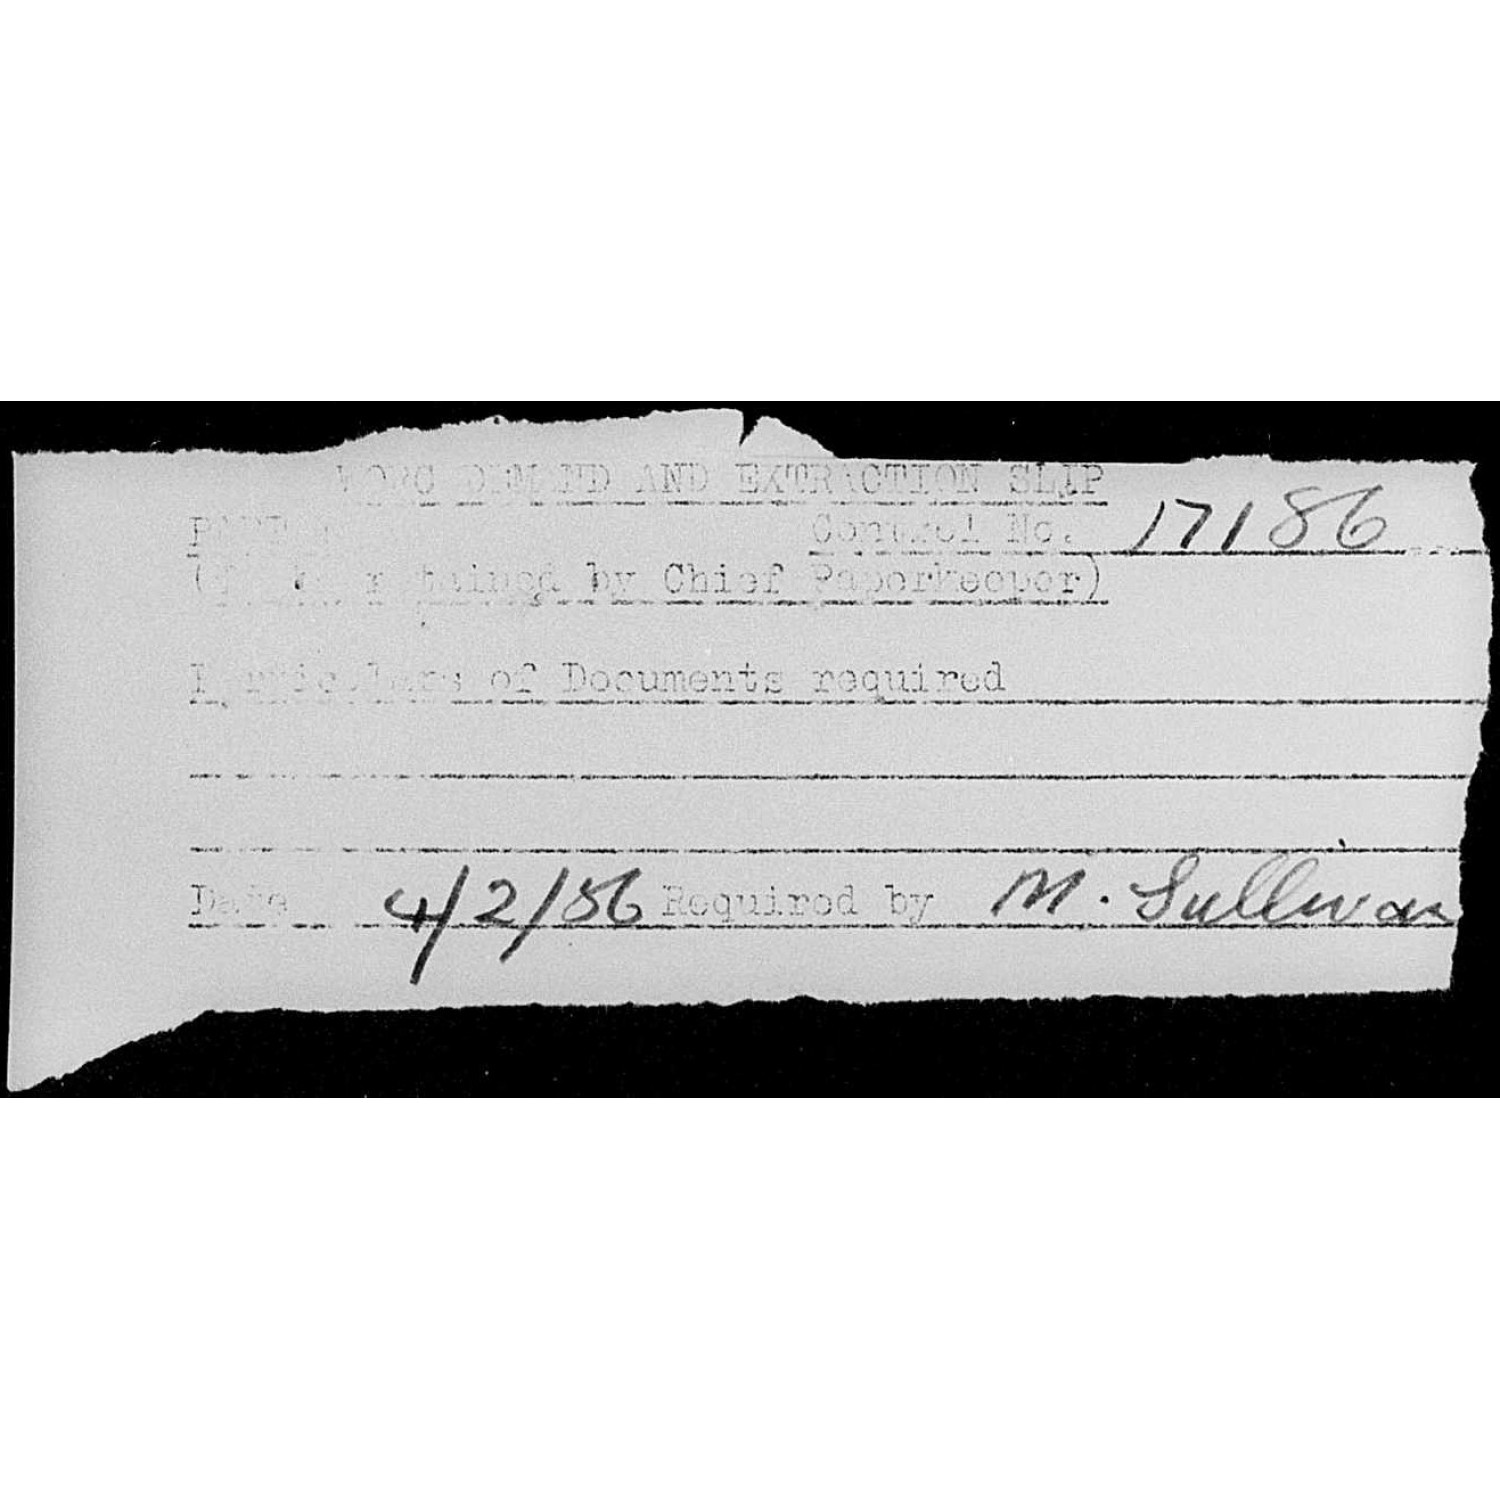 DEMAND AND EXTRACTION SLIP
Control No. 17186
retained by Chief Paperkeeper)
Particulars of Documents required
Date 4/2/86 Required by M. Sullivan